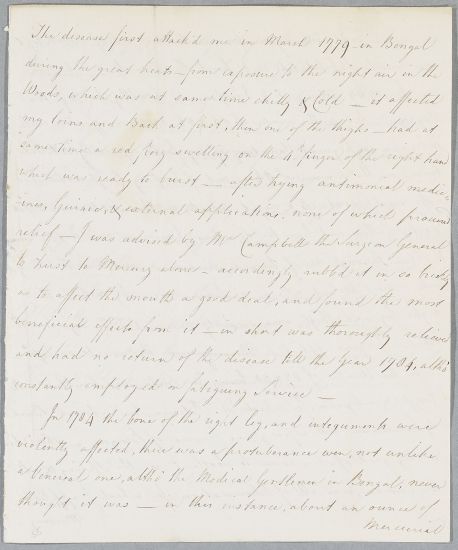 The disease first attack'd me in March 1779 - in Bengal
during the great heats - from exposure to the night air in the
Woods, which was at same time chilly & Cold - it affected
my loins and Back at first, then one of the thighs - had at
same time a red swelling on the 4th finger of the right hand
which was ready to burst - after trying antimonial medic-
ines, Guiaic, & external applications, none of which procured
relief - I was advised by Mr Campbell the Surgeon General
to trust to Mercury alone - accordingly rubb'd it in so briskly
as to affect the mouth a good deal, and found the most
beneficial effects from it - in short was thoroughly relieved
and had no return of the disease till the Year 1784, altho'
constantly employed on fatiguing Service -
In 1784 the bone of the right leg, and integuments were
violently affected, there was a protuberance even, not unlike
a Venereal one, altho' the Medical Gentlemen in Bengal, never
thought it was - in this instance, about an ounce of
Mercurial